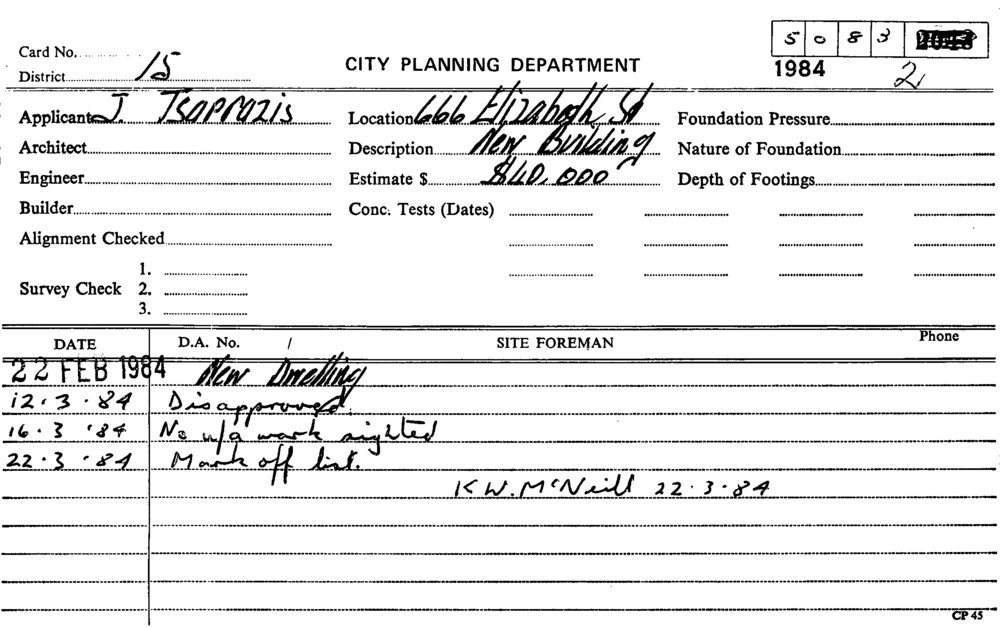 Card No. 5 0 8 3
District 15 CITY PLANNING DEPARTMENT 1984 2
Applicant J. Tsoprazis Location 666 Elizabeth St Foundation Pressure
Architect Description New Building Nature of Foundation
Engineer Estimate $ $40,000 Depth of Footings
Builder Conc. Tests (Dates)
Alignment Checked
1.
Survey Check 2.
3.
DATE D.A. No. / SITE FOREMAN Phone
22 FEB 1984 New Dwelling
12.3.84 Disapproved.
16.3.84 No u/a work sighted
22.3.84 Mark off list.
K.W. McNeill 22.3.84
CP 45